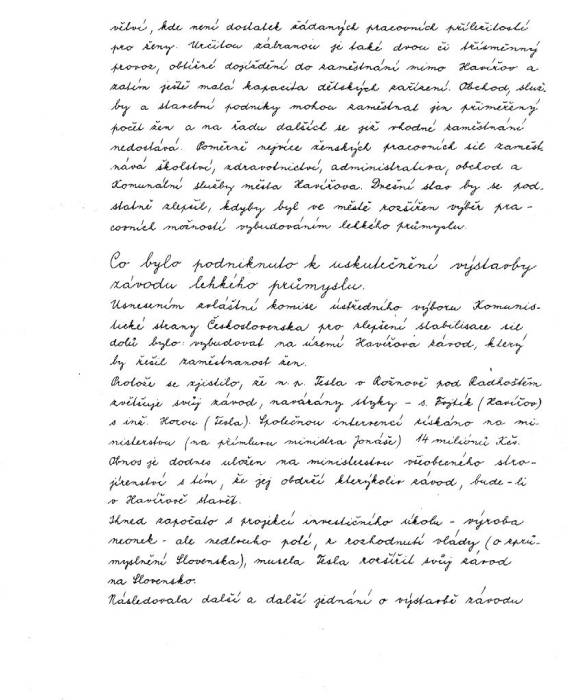 větví, kde není dostatek žádaných pracovních příležitostí
pro ženy. Určitou zábranou je také dvou či třísměnný
provoz, obtížné dojíždění do zaměstnání mimo Havířov a
zatím ještě malá kapacita dětských zařízení. Obchod, služ.
by a stavební podniky mohou zaměstnat jen přiměřený
počet žen a na řadu dalších se již vhodné zaměstnání
nedostává. Poměrně nejvíce ženských pracovních sil zaměst.
nává školství, zdravotnictví, administrativa, obchod a
komunální služby města Havířova. Dnešní stav by se pod.
statně zlepšil, kdyby byl ve městě rozšířen výběr pra-
covních možností vybudováním lehkého průmyslu.
Co bylo podniknuto k uskutečnění výstavby
závodu lehkého průmyslu.
Usnesením zvláštní komise ústředního výboru Komunis-
tické strany Československa pro zlepšení stabilisace sil
dolů bylo: vybudovat na území Havířova závod, který
by řešil zaměstnanost žen.
Protože se zjistilo, že n. p. Tesla v Rožnově pod Radhoštěm
zvětšuje svůj závod, navázány styky - s. Fojtík (Havířov)
s inž. Horou (Tesla). Společnou intervencí získáno na mi-
nisterstvu (na přímluvu ministra Jonáše) 14 miliónů Kčs.
Obnos je dodnes uložen na ministerstvu všeobecného stro-
jírenství s tím, že jej obdrží kterýkoliv závod, bude-li
v Havířově stavět.
Ihned započato s projekcí investičního úkolu - výroba
neonek - ale nedlouho poté, z rozhodnutí vlády (o zprů-
myslnění Slovenska), musela Tesla rozšířit svůj závod
na Slovensko.
Následovala další a další jednání o výstavbě závodu